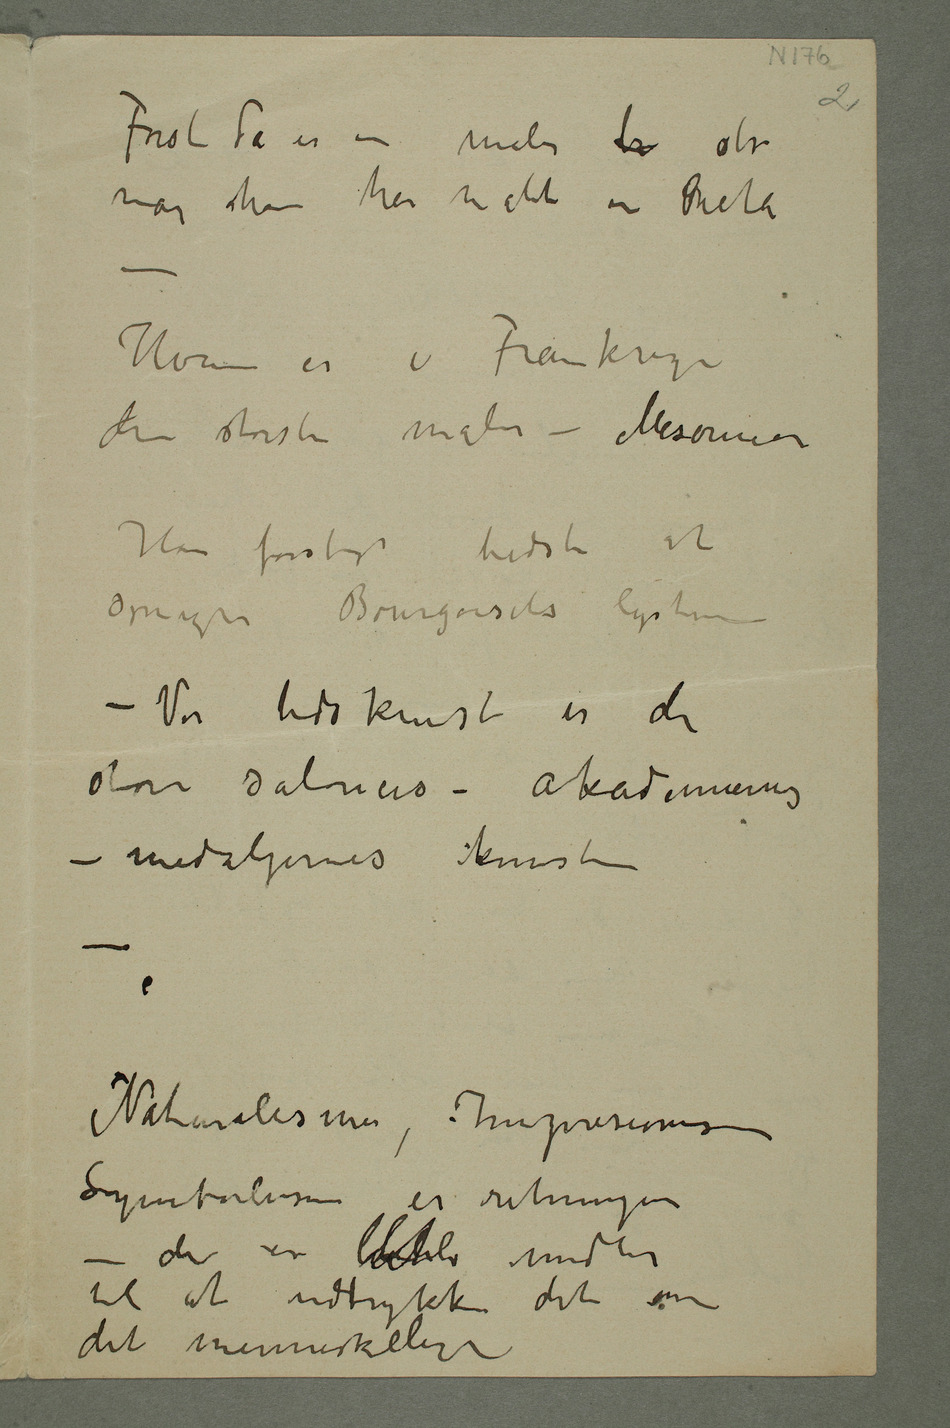 N 176
2,
Først da er en maler stor
når han har malt en Pieta
—
Hvem er i Frankrige
den største maler – Mesonier
Han forstår bedst at
smigre Bourgoisets lyster
– Vor tids kunst er de
store saloners – akademiernes
– medaljernes kunst
—
Naturalisme, Impresionisme
Symbolisme er retninger
– de er midler
til at udtrykke det ene
det menneskelige